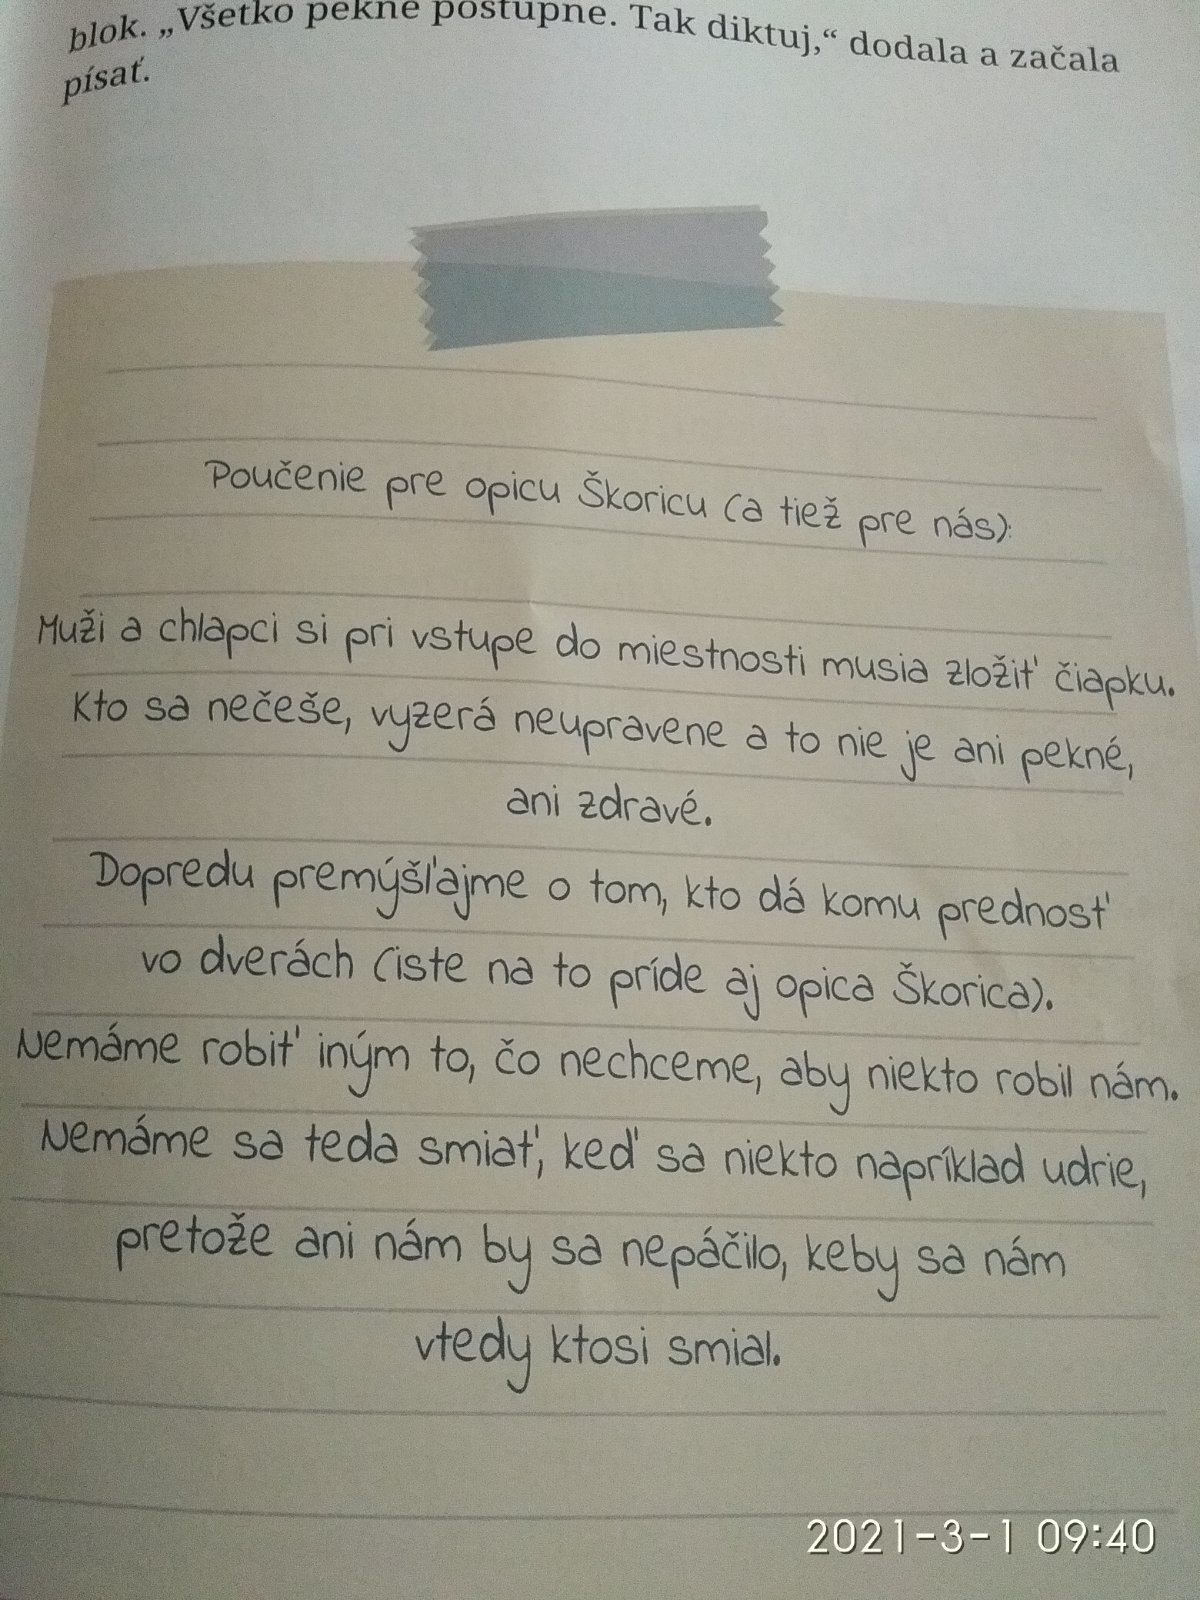 blok. „Všetko pekne postupne. Tak diktuj,“ dodala a začala
písať.
Poučenie pre opicu Škoricu (a tiež pre nás):
Muži a chlapci si pri vstupe do miestnosti musia zložiť čiapku.
Kto sa nečeše, vyzerá neupravene a to nie je ani pekné,
ani zdravé.
Dopredu premýšľajme o tom, kto dá komu prednosť
vo dverách (iste na to príde aj opica Škorica).
Nemáme robiť iným to, čo nechceme, aby niekto robil nám.
Nemáme sa teda smiať, keď sa niekto napríklad udrie,
pretože ani nám by sa nepáčilo, keby sa nám
vtedy ktosi smial.
2021-3-1 09:40